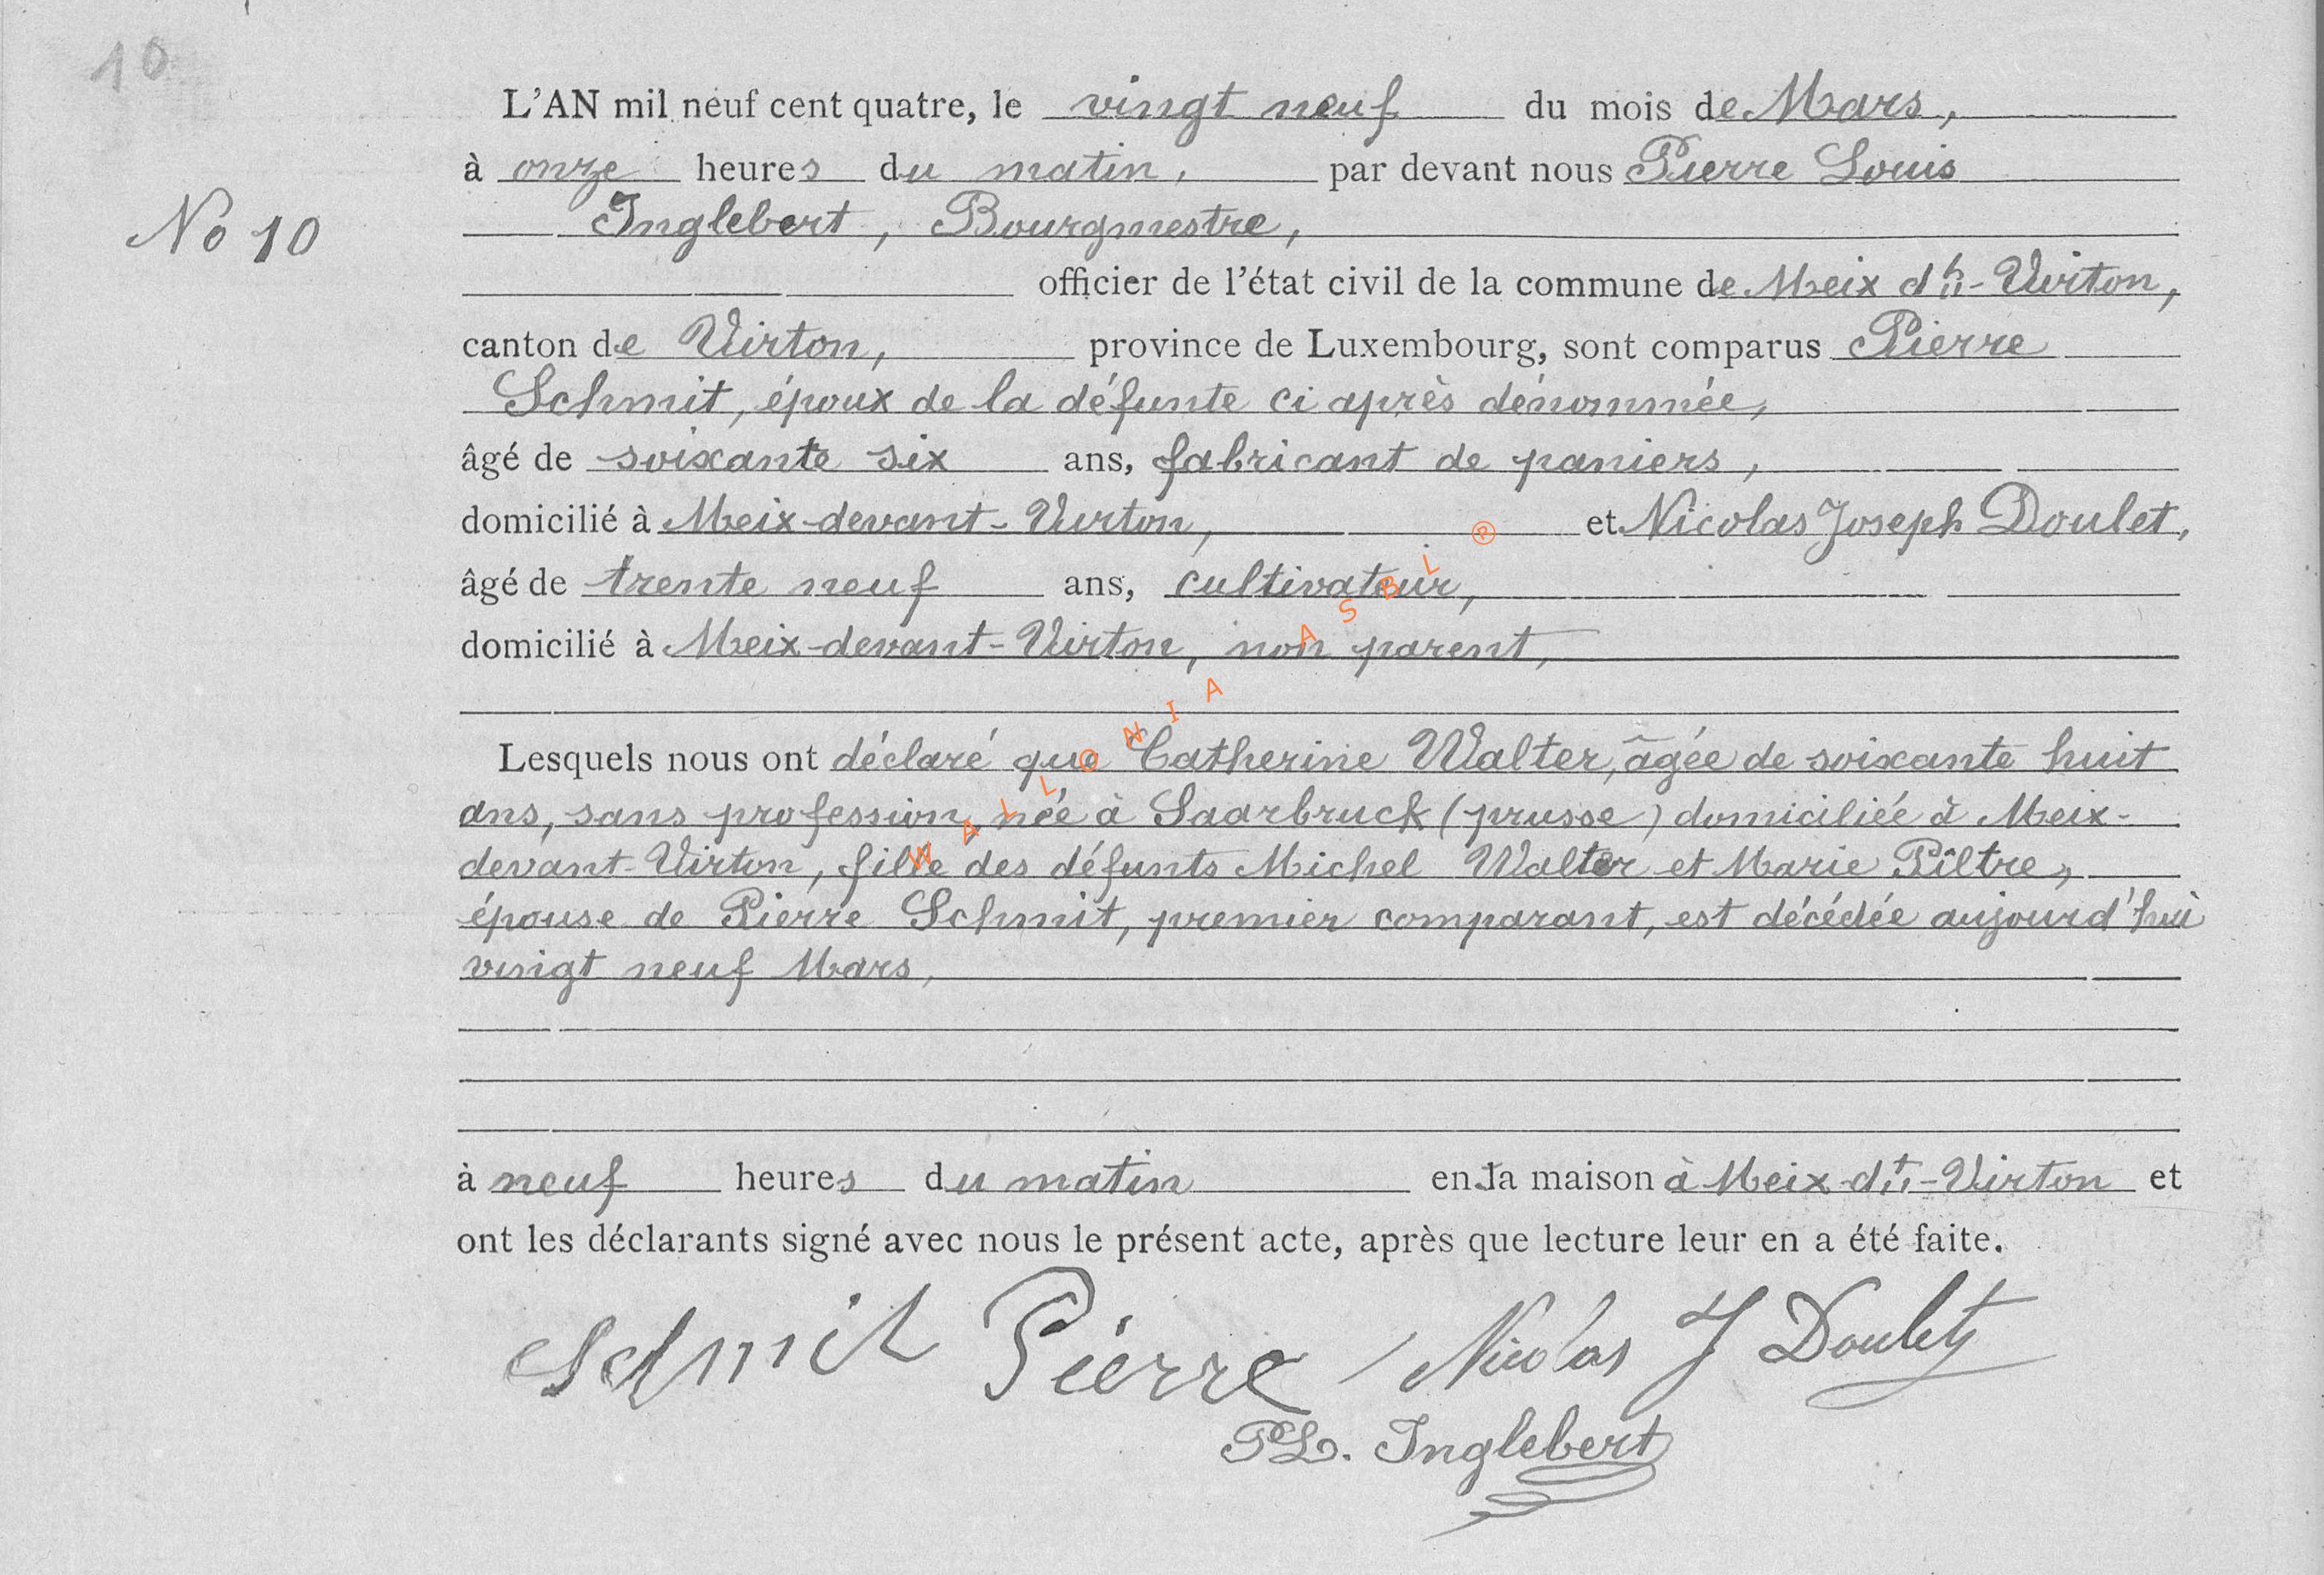 10
L'AN mil neuf cent quatre, le vingt neuf du mois de Mars,
à onze heures du matin, par devant nous Pierre Louis
No 10
Inglebert, Bourgmestre,
officier de l'état civil de la commune de Meix dt-Virton,
canton de Virton, province de Luxembourg, sont comparus Pierre
Schmit, époux de la défunte ci après dénommée,
âgé de soixante six ans, fabricant de paniers,
domicilié à Meix-devant-Virton, et Nicolas Joseph Doulet,
âgé de trente neuf ans, cultivateur,
domicilié à Meix-devant-Virton, non parent,
Lesquels nous ont déclaré que Catherine Walter, âgée de soixante huit
ans, sans profession, née à Saarbruck (prusse) domiciliée à Meix-
devant-Virton, fille des défunts Michel Walter et Marie Piltre,
épouse de Pierre Schmit, premier comparant, est décédée aujourd'hui
vingt neuf Mars,
à neuf heures du matin en sa maison à Meix-dt-Virton et
ont les déclarants signé avec nous le présent acte, après que lecture leur en a été faite.
Schmit Pierre Nicolas J Doulet
PL. Inglebert
WALLONIA ASBL ®